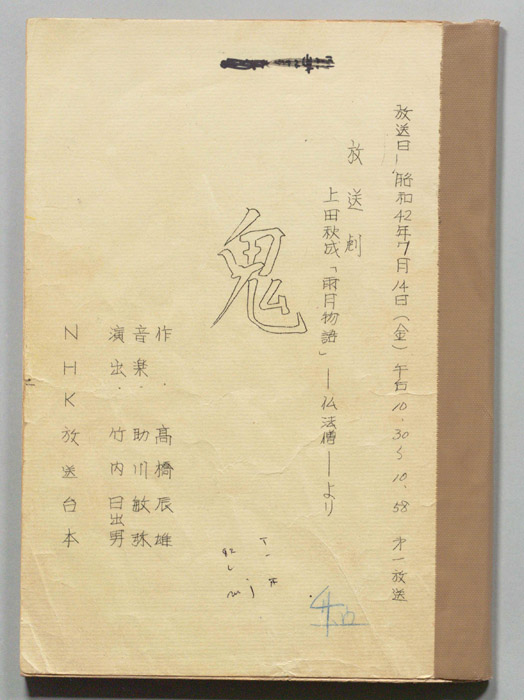 放送日-昭和42年7月14日(金)午后10.30〜10.58 才一放送
放送劇
上田秋成「雨月物語」―仏法僧―より
鬼
作・高橋辰雄
音楽・助川敏弥
演出・竹内日出男
NHK放送台本